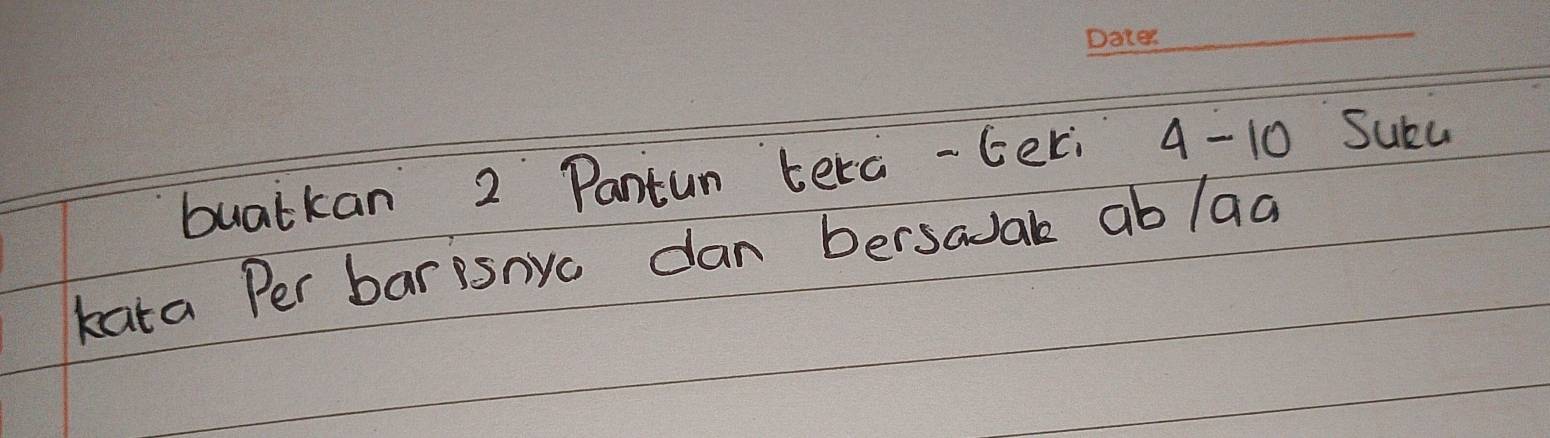 Date:
buatkan 2 Pantun teka-teki 4-10 Suku
kata Per barisnya dan bersajak ab/aa